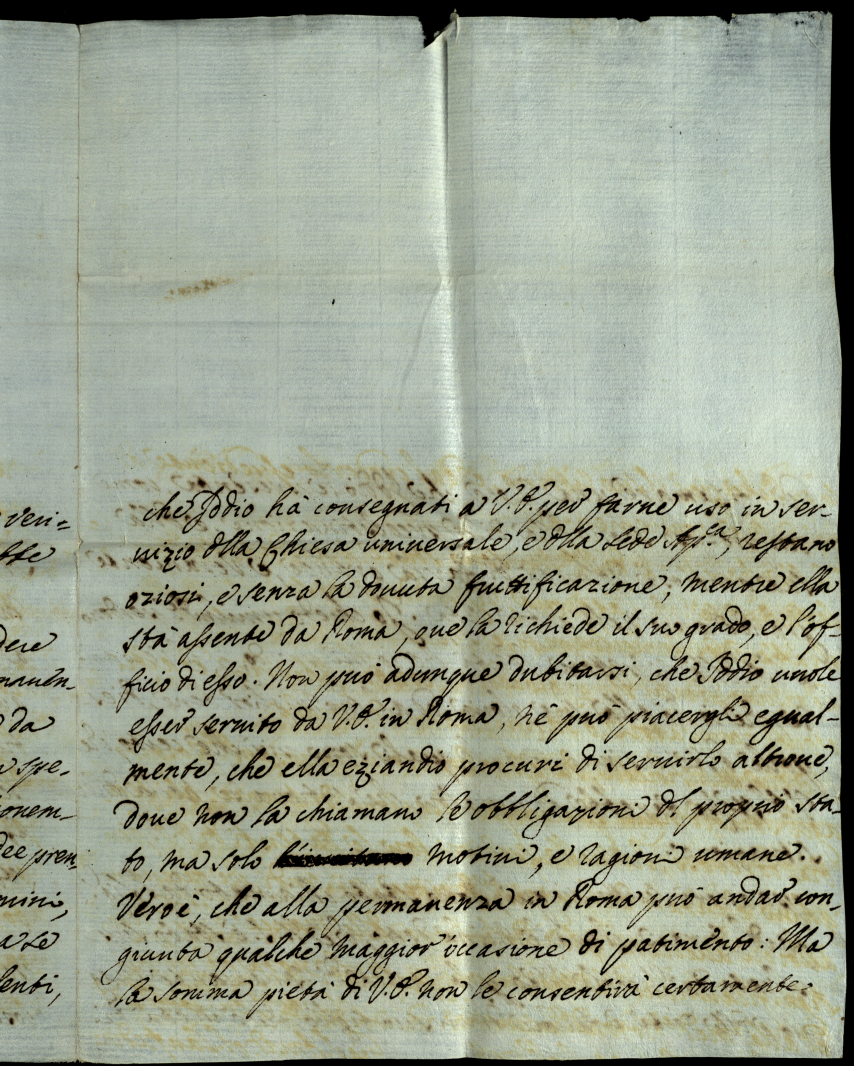 veri=
bbe
dere
manen-
da
spe-
onem-
dee pren-
mini,
a se
lenti,
che Iddio hà consegnati a V.E. per farne uso in ser-
uizio dlla Chiesa universale, e dlla Sede Ap.ca, restano
oziosi, e senza la douuta fruttificazione, mentre ella
stà assente da Roma, oue la richiede il suo grado, e l'of-
ficio di esso. Non può adunque dubitarsi, che Iddio uuole
esser seruito da V.E. in Roma, nè può piacergli egual-
mente, che ella eziandio procuri di seruirlo altroue,
doue non la chiamano le obbligazioni dl proprio sta-
to, ma solo motiui, e ragioni umane.
Vero è, che alla permanenza in Roma può andar con-
giunta qualche maggior occasione di patimento: Ma
la somma pietà di V.E. non le consentirà certamente